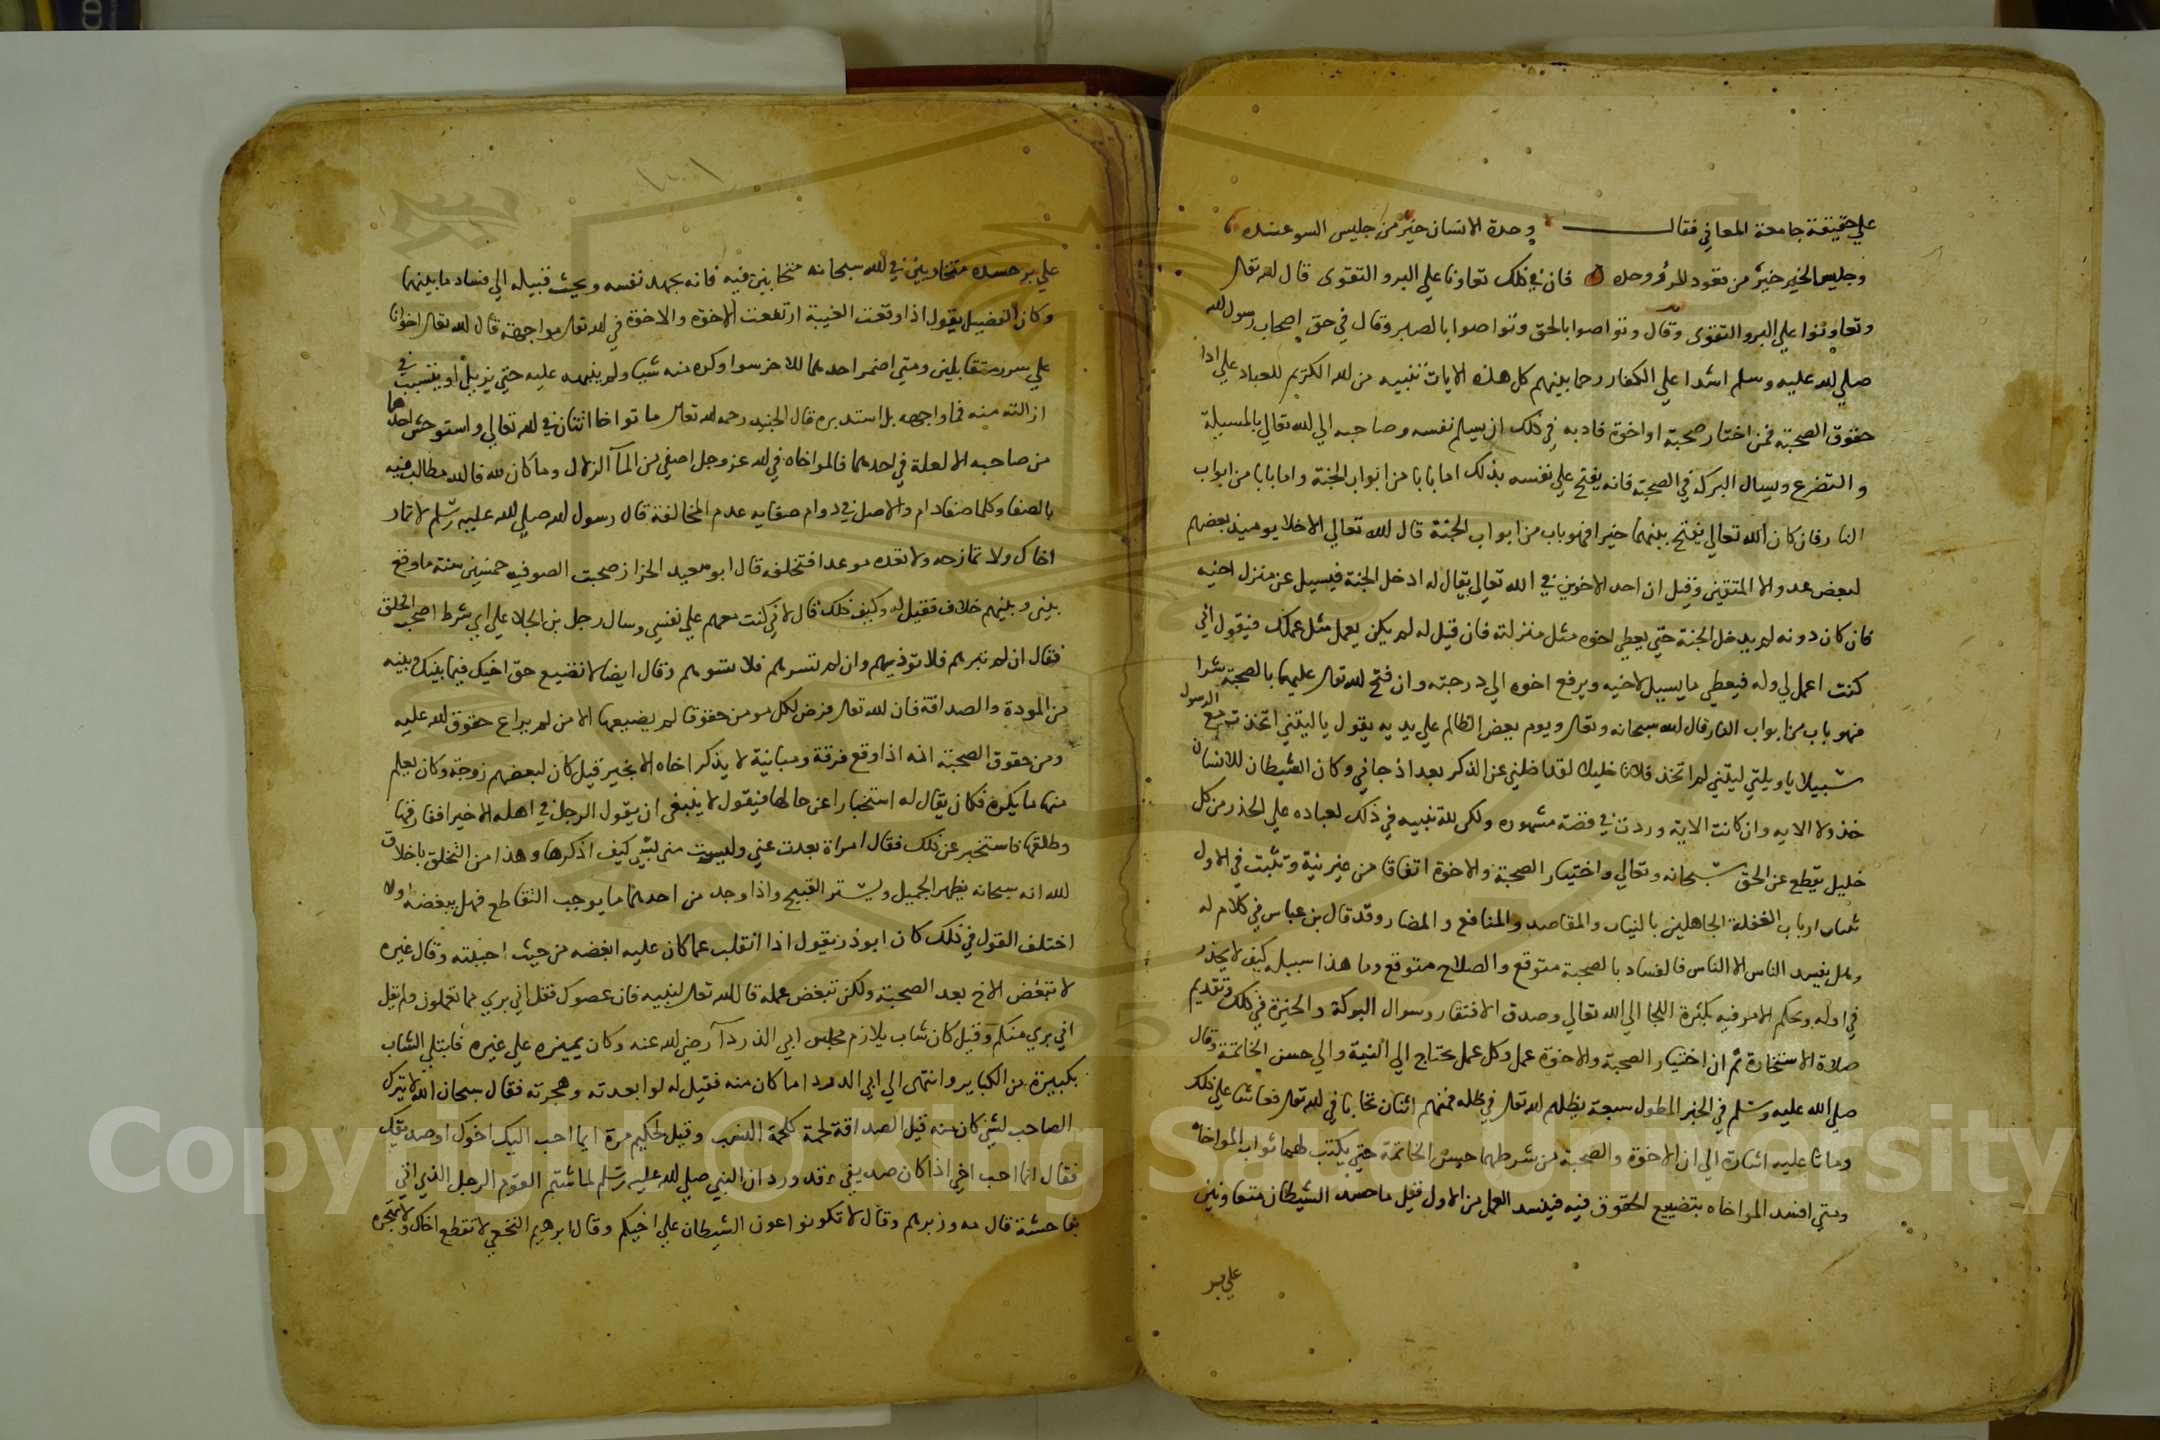 علي حقيقة جامعة المعاني فقال وحدة الانسان خير من جليس السو عنده
وجليس الخير خير من قعود المرء وحده فان في ذلك تعاونا علي البر والتقوى قال الله تعالى
وتعاونوا علي البر والتقوى وقال وتواصوا بالحق وتواصوا بالصبر وقال في حق اصحاب رسول الله
صلي الله عليه وسلم اشدا علي الكفار رحما بينهم كل هذه الايات تنبيه من الله الكريم للعباد علي ادا
حقوق الصحبة فمن اختار صحبة او اخوة فادبه في ذلك ان يسلم نفسه وصاحبه الي الله تعالي بالمسيلة
والتضرع ويسال البركة في الصحبة فانه يفتح علي نفسه بذلك اما بابا من ابواب الجنة واما بابا من ابواب
النار فان كان الله تعالي يفتح بينهما خيرا فهو باب من ابواب الجنة قال الله تعالي الاخلا يوميذ بعضهم
لبعض عدو الا المتقين وقيل ان احد الاخوين في الله تعالي يقال له ادخل الجنة فيسيل عن منزل اخيه
فان كان دونه لم يدخل الجنة حتي يعطي اخوه مثل منزلته فان قيل له لم يكن يعمل مثل عملك فيقول اني
كنت اعمل لي وله فيعطي ما يسيل لاخيه ويرفع اخوه الي درجته وان فتح الله تعالى عليهما بالصحبة شرا
فهو باب من ابواب النار قال الله سبحانه وتعالى ويوم يعض الظالم علي يديه يقول يا ليتني اتخذت مع الرسول
سبيلا يا ويلتي ليتني لم اتخذ فلانا خليلا لقد اضلني عن الذكر بعد اذ جاني وكان الشيطان للانسان
خذولا الاية وان كانت الاية وردت في قصة مشهوره ولكن لله تنبيه في ذلك لعباده علي الحذر من كل
خليل يقطع عن الحق سبحانه وتعالي واختيار الصحبة والاخوة اتفاقا من غير نية وتثبت في الاول
شان ارباب الغفلة الجاهلين بالنيات والمقاصد والمنافع والمضار وقد قال بن عباس في كلام له
وهل يفسد الناس الا الناس فالفساد بالصحبة متوقع والصلاح متوقع وما هذا سبيله كيف لا يحذر
في اوله ويحكم الامر فيه بكثرة اللجا الي الله تعالي وصدق الافتقار وسوال البركة والخيرة في ذلك وتقديم
صلاة الاستخارة ثم ان اختيار الصحبة والاخوة عمل وكل عمل يحتاج الي النية والي حسن الخاتمة وقال
صلي الله عليه وسلم في الخبر المطول سبعة يظلهم الله تعالى في ظله فمنهم اثنان تحابا في الله تعالى فعاشا علي ذلك
وماتا عليه اشارة الي ان الاخوة والصحبة من شرطهما حسن الخاتمة حتي يكتب لهما ثواب المواخاه
ومتي افسد المواخاه بتضييع الحقوق فيه فيفسد العمل من الاول قيل ما حسد الشيطان متعاونين
علي بر
علي بر حسده متخاويين في الله سبحانه متحابين فيه فانه يجهد نفسه ويحث قبيله الي فساد ما بينهما
وكان الفضيل يقول اذا وقعت الغيبة ارتفعت الاخوة والاخوة في الله تعالى مواجهة قال الله تعالى اخوانا
علي سرر متقابلين ومتي اضمر احدهما للاخر سوا وكره منه شيا ولم ينبهه عليه حتي يزيله او يتسبب في
ازالته منه فما واجهه بل استدبره قال الجنيد رحمه الله تعالى ما تواخا اثنان في الله تعالي واستوحش احدهما
من صاحبه الا لعلة في احدهما فالمواخاه في الله عز وجل اصفي من المآ الزلال وما كان لله فالله مطالب فيه
بالصفا وكلما صفا دام والاصل في دوام صفايه عدم المخالفة قال رسول الله صلي الله عليه وسلم لا تمار
اخاك ولا تمازحه ولا تعده موعدا فتخلفه قال ابو سعيد الخراز صحبت الصوفيه خمسين سنة ما وقع
بيني وبينهم خلاف فقيل له وكيف ذلك قال لاني كنت معهم علي نفسي وسال رجل بن الجلا علي اي شرط اصحب الخلق
فقال ان لم تبرهم فلا توذيهم وان لم تسرهم فلا تسوهم وقال ايضا لا تضيع حق اخيك فيما بينك وبينه
من المودة والصداقة فان الله تعالى فرض لكل مومن حقوقا لم يضيعها الا من لم يراع حقوق الله عليه
ومن حقوق الصحبة انه اذا وقع فرقة ومباينة لا يذكر اخاه الا بخير قيل كان لبعضهم زوجة وكان يعلم
منها ما يكره فكان يقال له استخبارا عن حالها فيقول لا ينبغي ان يقول الرجل في اهله الا خيرا ففارقها
وطلقها فاستخبر عن ذلك فقال امراة بعدت عني وليست مني بشي كيف اذكرها وهذا من التخلق باخلاق
الله انه سبحانه يظهر الجميل ويستر القبيح واذا وجد من احدهما ما يوجب التقاطع فهل يبغضه اولا
اختلف القول في ذلك كان ابو ذر يقول اذا انقلب عما كان عليه ابغضه من حيث احببته وقال غيره
لا تبغض الاخ بعد الصحبة ولكن تبغض عمله قال الله تعالى لنبيه فان عصوك فقل اني بري مما تعملون ولم يقل
اني بري منكم وقيل كان شاب يلازم مجلس ابي الدردآ رضي الله عنه وكان يميزه علي غيره فابتلي الشاب
بكبيرة من الكباير وانتهى الي ابي الدردا ما كان منه فقيل له لو ابعدته وهجرته فقال سبحان الله لا يترك
الصاحب لشي كان منه قيل الصداقة لحمة كلحمة النسب وقيل لحكيم مرة ايما احب اليك اخوك او صديقك
فقال انما احب اخي اذا كان صديقي وقد ورد ان النبي صلي الله عليه وسلم لما شتم القوم الرجل الذي اتي
بفاحشة قال مه وزبرهم وقال لا تكونوا عون الشيطان علي اخيكم وقال ابرهيم النخعي لا تقطع اخاك ولا تهجره
Copyright © King Saud University